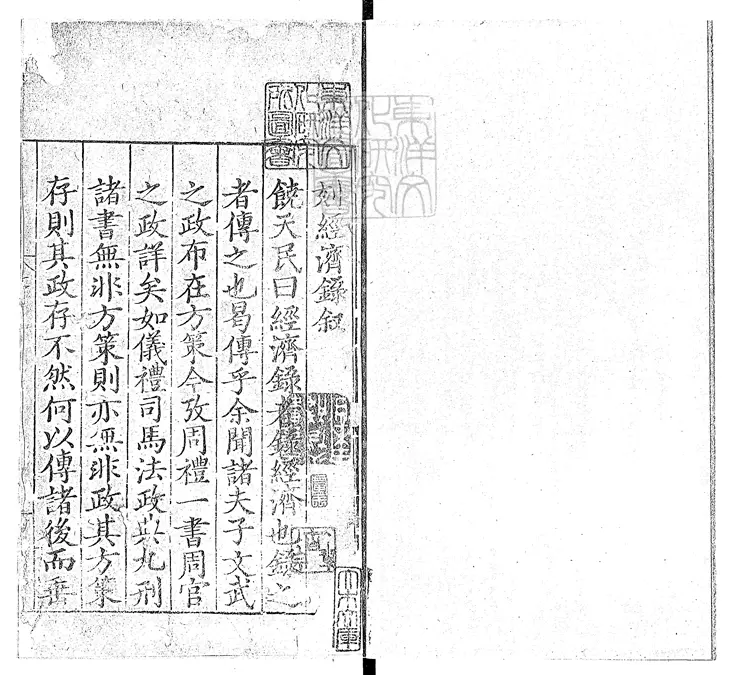 刻經濟錄叙
饒天民曰經濟錄者錄經濟也錄之
者傳之也曷傳乎余聞諸夫子文武
之政布在方策今攷周禮一書周官
之政詳矣如儀禮司馬法政典九刑
諸書無非方策則亦無非政其方策
存則其政存不然何以傳諸後而垂
東洋文
化研究
所圖書
大木文庫